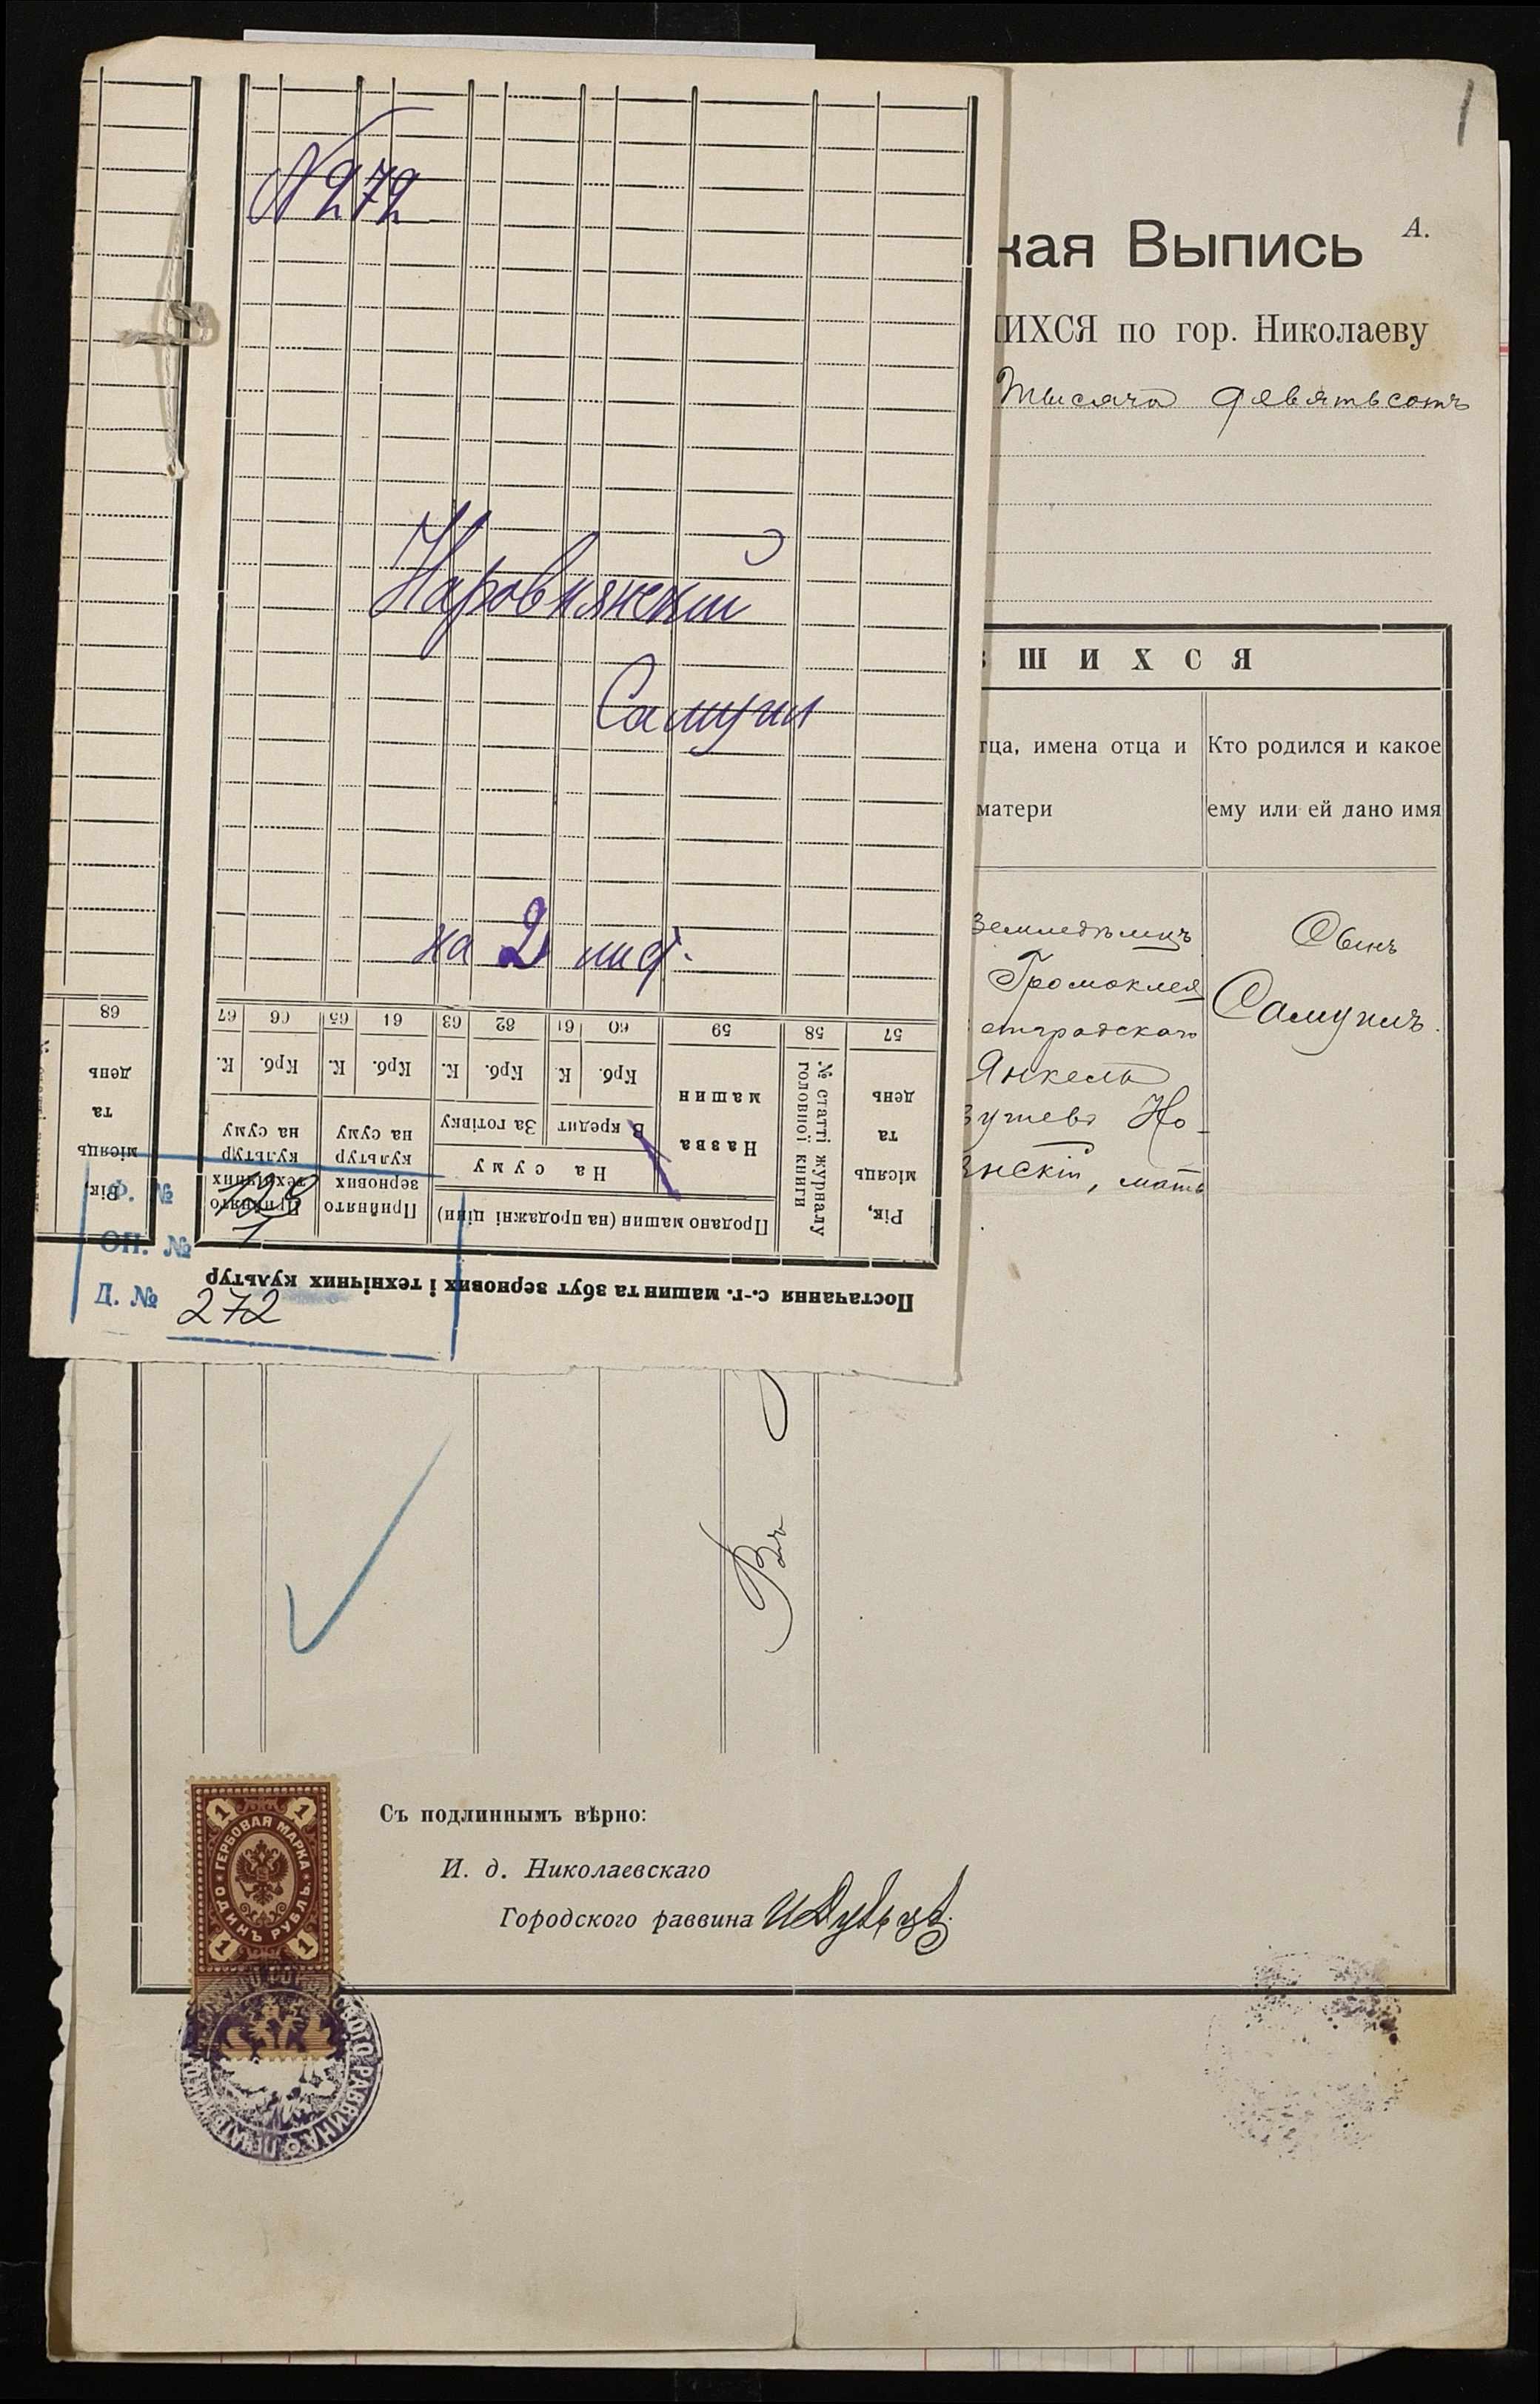 1
N 272
Наровлянский
Самуил
на 2 лист.
68
день
та
місяць
Рік,
67
66
65
61
63
62
61
60
59
58
57
К.
Крб.
К.
Крб.
К.
Крб.
К.
Крб.
Назва
машин
№ статті журналу
головної книги
Рік,
місяць
та
день
За готівку
В кредит
На суму
Прийнято
технічних
культур
на суму
Прийнято
зернових
культур
на суму
Продано машин (на продажні ціни)
Постачання с.-г. машин та збут зернових і технічних культур
Ф. №
ОП. №
1
Д. № 272
кая Выпись
А.
ИХСЯ по гор. Николаеву
Тысяча девятьсотъ
ШИХСЯ
тца, имена отца и
матери
Кто родился и какое
ему или ей дано имя
Земледѣлецъ
Громоклея
етградскаго
Янкель
На-
нскій, мать
Сынъ
Самуилъ.
Въ
1 1
ГЕРБОВАЯ МАРКА
ОДИНЪ РУБЛЬ.
1 1
Съ подлиннымъ вѣрно:
И. д. Николаевскаго
Городского раввина
РАВВИНА